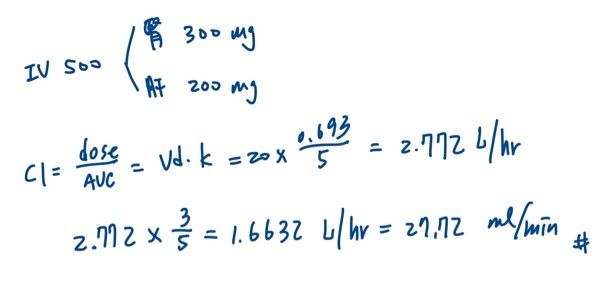 IV 500
腎 300 mg
肝 200 mg
Cl = dose/AUC = Vd · k = 20 × 0.693/5 = 2.772 L/hr
2.772 × 3/5 = 1.6632 L/hr = 27.72 ml/min #